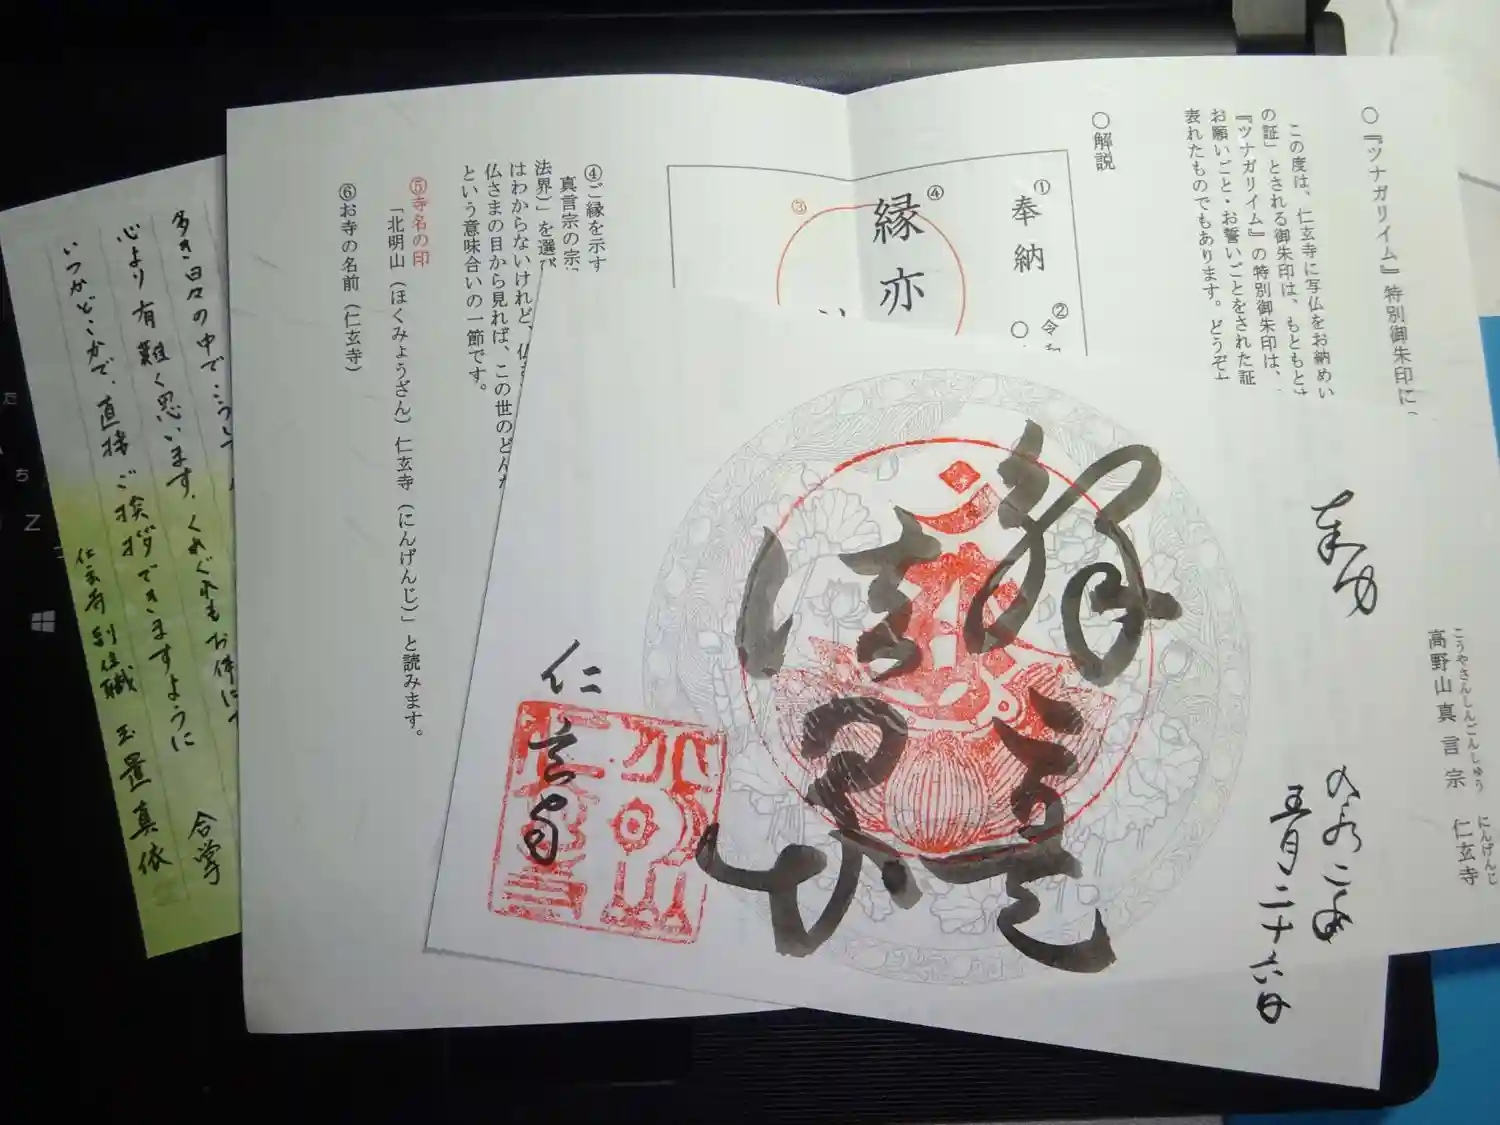 ○『ツナガリイム』特別御朱印に
この度は、仁玄寺に写仏をお納めい
の証」とされる御朱印は、もともとは
『ツナガリイム』の特別御朱印は、
お願いごと・お誓いごとをされた証
表れたものでもあります。どうぞ
○解説
①
奉納
②
令和
③
④
縁亦
④ご縁を示す
真言宗の宗
法界）」を選
はわからないけれど、仏
仏さまの目から見れば、この世のどんな
という意味合いの一節です。
⑤寺名の印
「北明山（ほくみょうざん）仁玄寺（にんげんじ）」と読みます。
⑥お寺の名前（仁玄寺）
こうやさんしんごんしゅう
高野山真言宗
にんげんじ
仁玄寺
奉納
令和二年
五月二十六日
縁亦
法界
仁玄寺
多き日々の中で、こうして
心より有難く思います。くれぐれもお体に
いつかどこかで、直接ご挨拶できますように
合掌
仁玄寺副住職 玉置真依
た
ち
Z